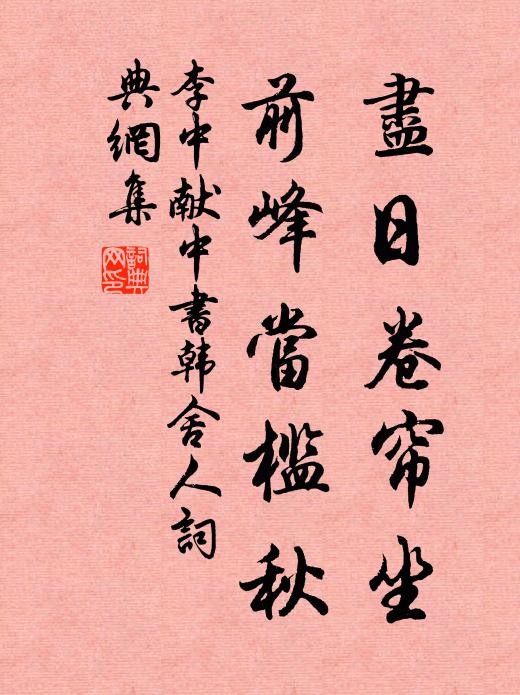 盡日卷帘坐
前峰當檻秋
李中献中書韩舍人詞
典網集
詞典
网印